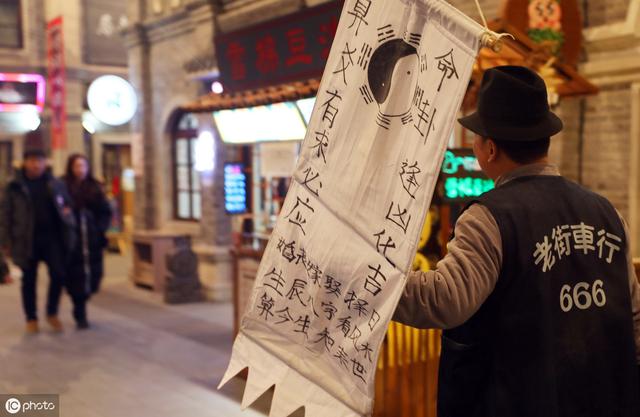 命卦 逢凶化吉
算爻 有求必应
婚姻嫁娶择日
生辰八字看风水
算今生知来世
老街車行
666
iC photo